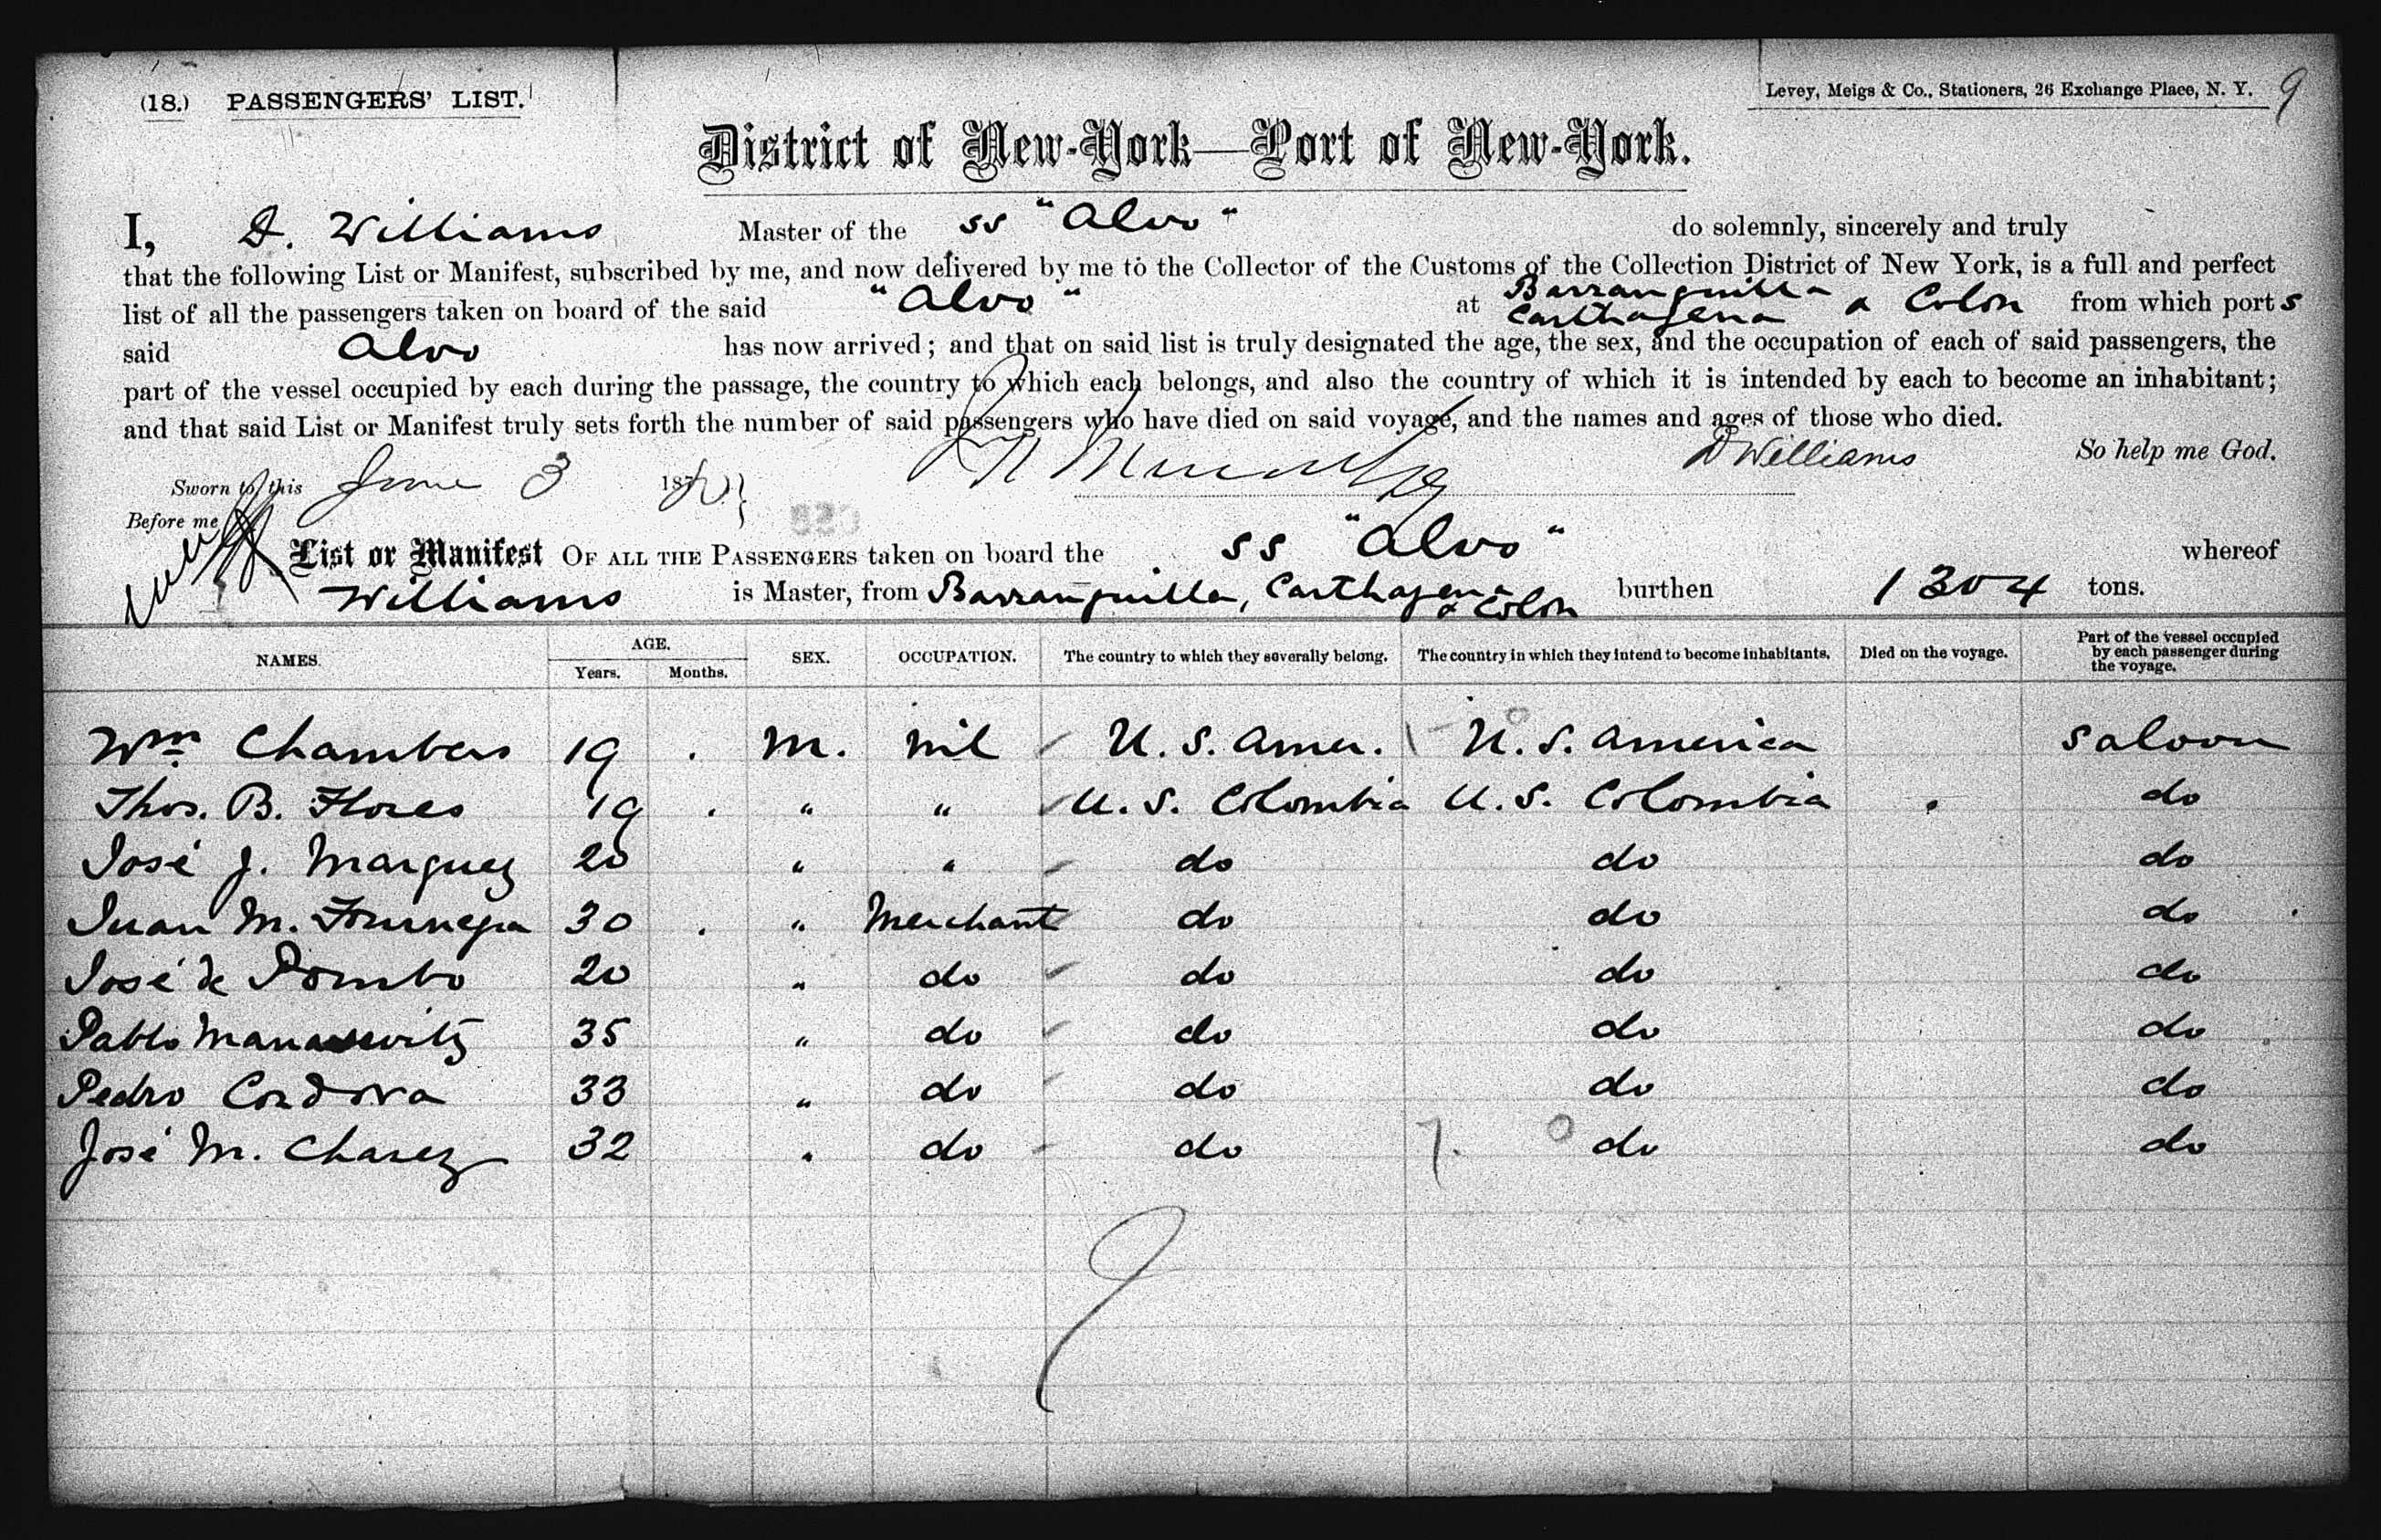 (18.) PASSENGERS' LIST.
Levey, Meigs & Co., Stationers, 26 Exchange Place, N. Y. 9
District of New-York—Port of New-York.
I, D. Williams Master of the ss "Alvo" do solemnly, sincerely and truly
that the following List or Manifest, subscribed by me, and now delivered by me to the Collector of the Customs of the Collection District of New York, is a full and perfect
list of all the passengers taken on board of the said "Alvo" at Barranquilla Carthagena & Colon from which ports
said Alvo has now arrived; and that on said list is truly designated the age, the sex, and the occupation of each of said passengers, the
part of the vessel occupied by each during the passage, the country to which each belongs, and also the country of which it is intended by each to become an inhabitant;
and that said List or Manifest truly sets forth the number of said passengers who have died on said voyage, and the names and ages of those who died.
D Williams So help me God.
Sworn to, this June 3 18
Before me
List or Manifest OF ALL THE PASSENGERS taken on board the ss "Alvo" whereof
Williams is Master, from Barranquilla, Carthagena & Colon burthen 1304 tons.
NAMES. AGE. Years. Months. SEX. OCCUPATION. The country to which they severally belong. The country in which they intend to become inhabitants. Died on the voyage. Part of the vessel occupied by each passenger during the voyage.
Wm Chambers 19 M. nil U. S. Amer. U. S. America Saloon
Thos. B. Flores 19 " " U. S. Colombia U. S. Colombia do
José J. Marquez 20 " " do do do
Juan M. 30 " Merchant do do do
José de Pombo 20 " do do do do
Pablo 35 " do do do do
Pedro Cordova 33 " do do do do
José M. Chavez 32 " do do 7. do do